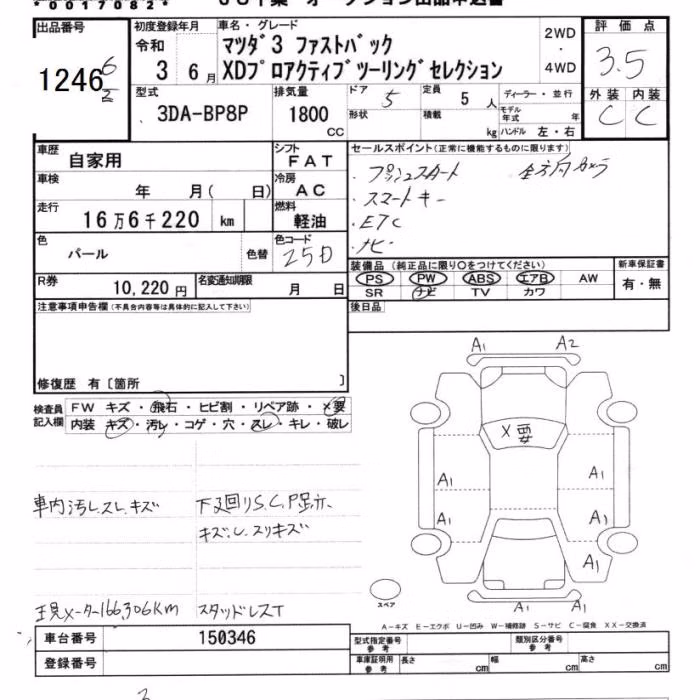 *00170822*
出品番号
12466/2
初度登録年月
令和
3 6月
車名・グレード
マツダ3 ファストバック
XDプロアクティブツーリングセレクション
2WD
・
4WD
評価点
3.5
外装 内装
C C
型式
3DA-BP8P
排気量
1800
CC
ドア 5
形状
定員 5 人
積載 kg
ディーラー・並行
モデル年式 年
ハンドル 左・右
車歴 自家用
シフト FAT
車検 年 月( 日)
冷房 AC
走行 16万6千220 km
燃料 軽油
色 パール 色替
色コード 25D
R券 10,220円
名変通知期限 月 日
セールスポイント(正常に機能するものに限ります)
・プッシュスタート 全方向カメラ
・スマートキー
・ETC
・ナビ
装備品(純正品に限り○をつけてください)
PS PW ABS エアB AW
SR ナビ TV カワ
新車保証書
有・無
後日品
注意事項申告欄(不具合内容等は具体的に記入して下さい)
修復歴 有〔箇所 〕
検査員記入欄
FW キズ・飛石・ヒビ割・リペア跡・×要
内装 キズ・汚レ・コゲ・穴・スレ・キレ・破レ
車内汚レスレ、キズ
下廻りS、C、P足介、
キズ、し、スリキズ
現メーター166,306KM
スタッドレスT
A1 A2
X要
A1 A1
A1 A1
A1
A1 A1
スペア
A-キズ E-エクボ U-凹み W-補修跡 S-サビ C-腐食 XX-交換済
車台番号 150346
登録番号
型式指定番号 参考
類別区分番号 参考
車庫証明用 参考 長さ cm 幅 cm 高さ cm